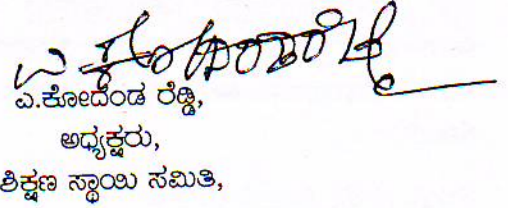 ಎ.ಕೋದಂಡ ರೆಡ್ಡಿ,
ಅಧ್ಯಕ್ಷರು,
ಶಿಕ್ಷಣ ಸ್ಥಾಯಿ ಸಮಿತಿ,